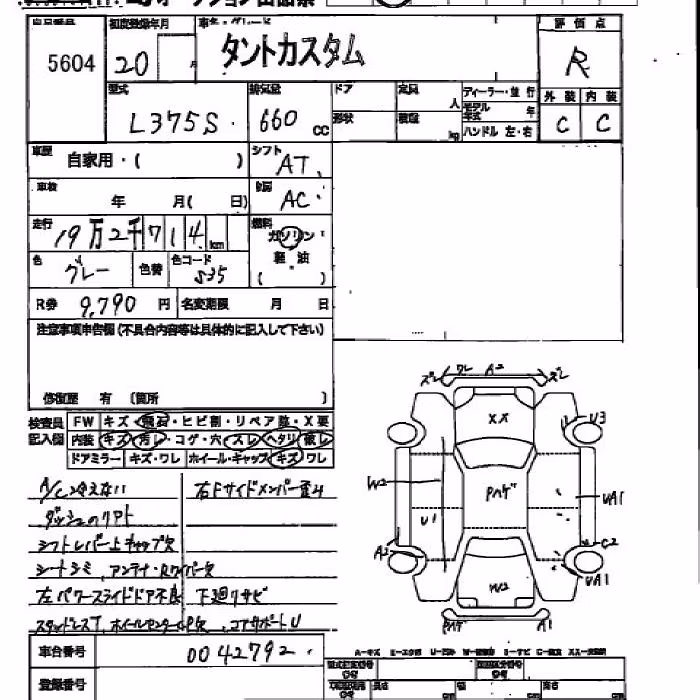 オークション出品票
出品番号 初度登録年月 車名・グレード 評価点
5604 20 月 タントカスタム R
型式 排気量 ドア 定員 ディーラー・並行 外装 内装
L375S 660 CC 形状 人 モデル年式 年 C C
積載 kg ハンドル 左・右
車歴 自家用・( ) シフト AT
車検 年 月( 日) 冷房 AC
走行 19万2千714 km 燃料 ガソリン
軽油
( )
色 グレー 色替 色コード S35
R券 9,790 円 名変期限 月 日
注意事項申告欄(不具合内容等は具体的に記入して下さい)
修復歴 有 〔箇所 〕
検査員 FW キズ・飛石・ヒビ割・リペア跡・X要
記入欄 内装 キズ・汚レ・コゲ・穴・スレ・ヘタリ・破レ
ドアミラー キズ・ワレ ホイール・キャップ キズ・ワレ
A/C冷えない 右Fサイドメンバー歪み
ダッシュのリアト
シフトレバー上キャップ欠
シートシミ、アンテナ・Rワイパー欠
左パワースライドドア不良 下廻りサビ
スタッドレスT、ホイールセンターCP欠、コアサポートU
ズレ ワレ A2 ズレ
XX U3
W2 Pハゲ UA1
U1
A2 C2
W2 UA1
Pハゲ A1
車台番号 0042792
登録番号
A-キズ E-エクボ U-凹み W-補修跡 S-サビ C-腐食 XX-交換済